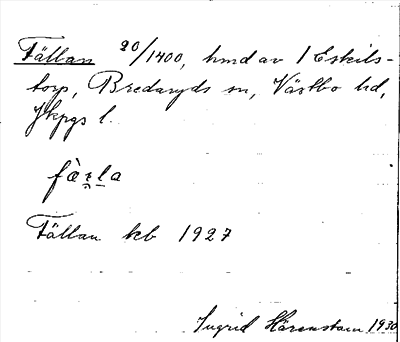 Fällan 20/1400, hmd av 1 Eskils-
torp, Bredaryds sn, Västbo hd,
Jkpgs l.
fàr̥l̠a
Fällan kb 1927
Ingrid Härenstam 1930